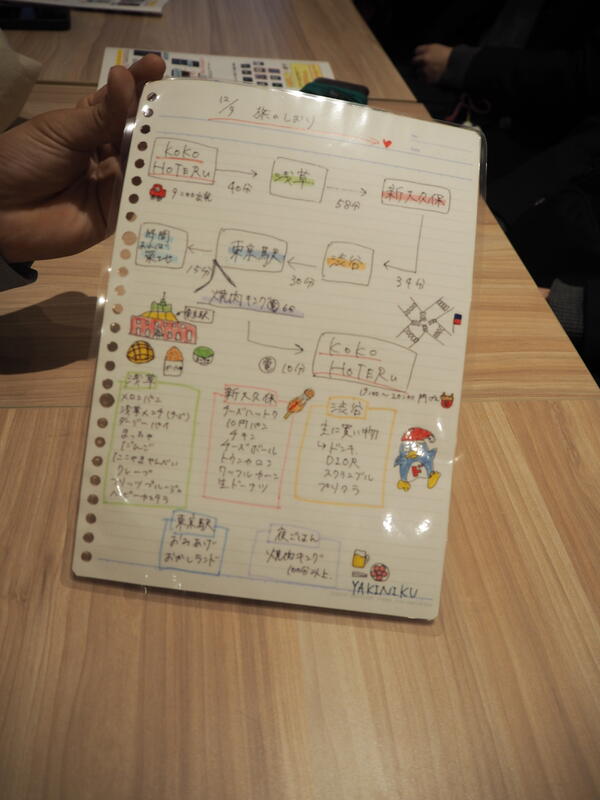 12/9 旅のしおり
KOKO
HOTERU
40分
浅草
58分
新大久保
34分
渋谷
30分
東京駅
15分
時間
築地
焼肉キング
東京駅
10分
KOKO
HOTERU
浅草
メロンパン
浅草メンチ
まっちゃ
だんご
クレープ
ベビーカステラ
新大久保
チーズハットク
10円パン
チキン
チーズボール
トゥンカロン
ワッフルカーン
生ドーナツ
渋谷
主に買い物
ドンキ
DIOR
スクランブル
プリクラ
東京駅
おみあげ
おかしランド
夜ごはん
焼肉キング
100分以上.
YAKINIKU